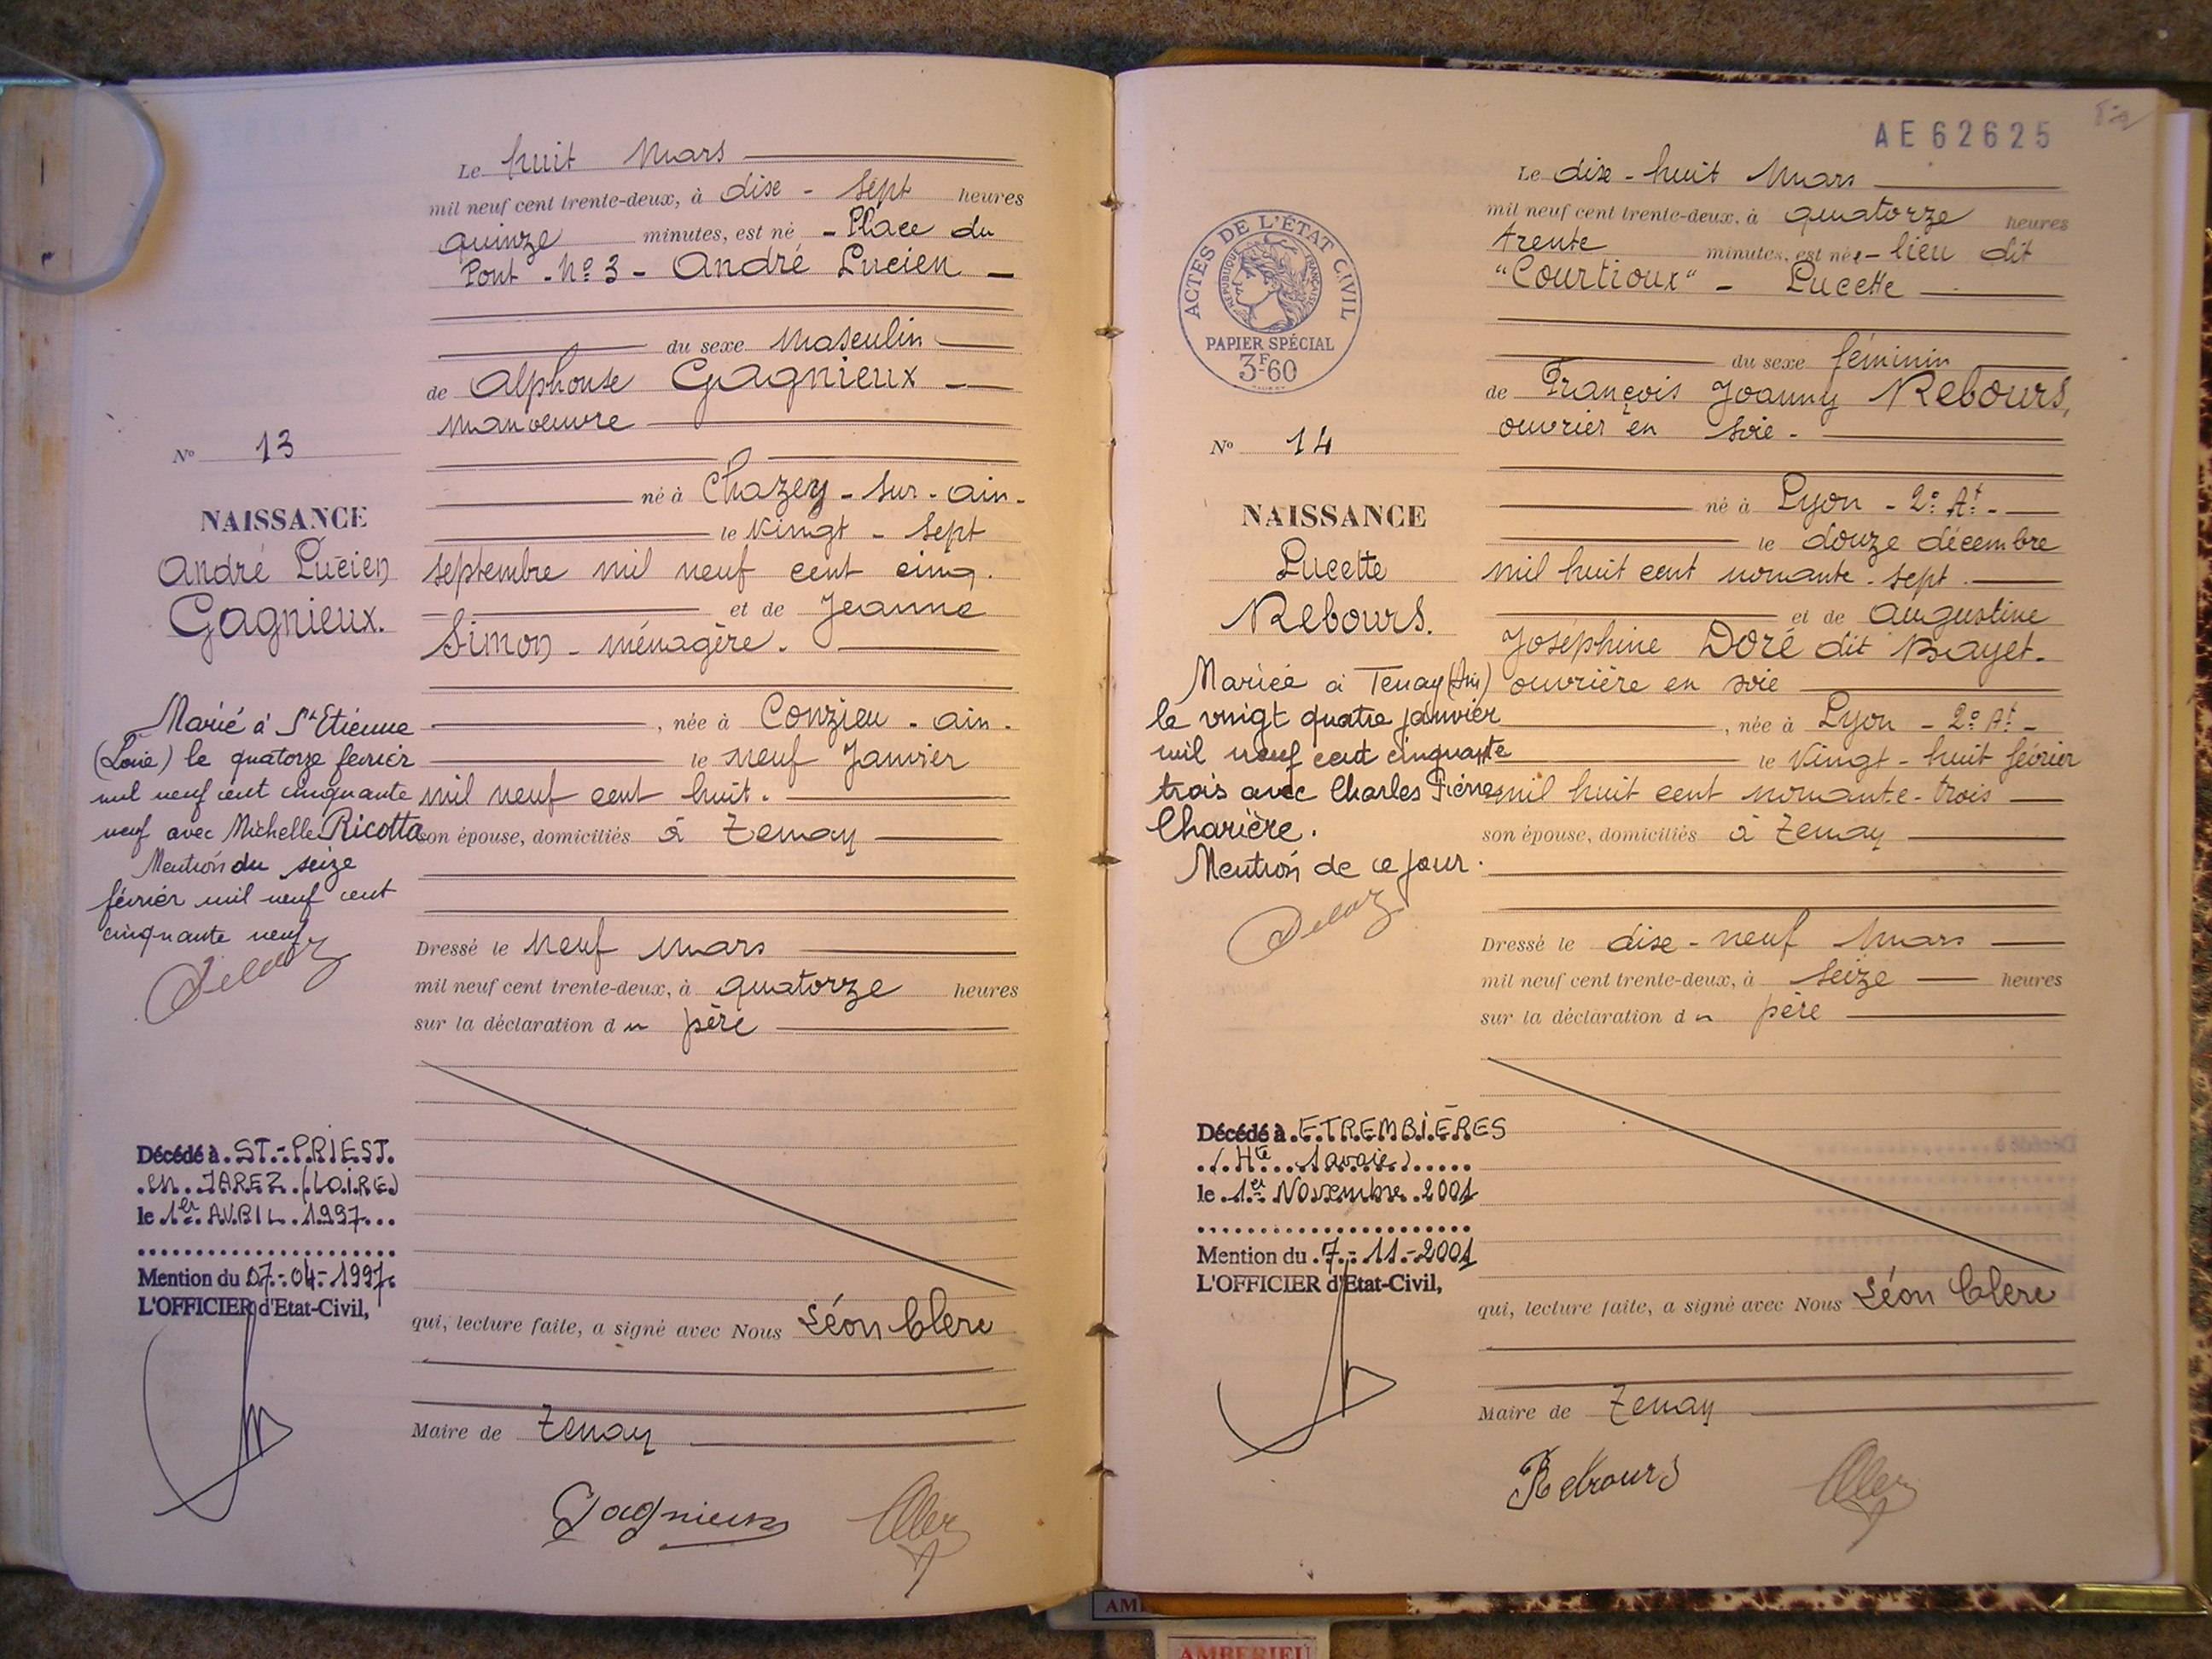 Le huit Mars
mil neuf cent trente-deux, à dise - sept heures
quinze minutes, est né - Place du
Pont - No 3 - André Lucien -
du sexe Masculin
de Alphonse Gagnieux -
Manoeuvre
né à Chazey - sur - ain -
le Vingt - sept
septembre mil neuf cent cinq.
et de Jeanne
Simon - ménagère.
, née à Conzieu - ain -
le neuf Janvier
mil neuf cent huit.
son épouse, domiciliés à Tenay
Dressé le Neuf Mars
mil neuf cent trente-deux, à quatorze heures
sur la déclaration du père
qui, lecture faite, a signé avec Nous Léon Clerc
Maire de Tenay
Gagnieux
No 13
NAISSANCE
André Lucien
Gagnieux.
Marié à St Etienne
(Loire) le quatorze février
mil neuf cent cinquante
neuf avec Michelle Ricotta
Mention du seize
février mil neuf cent
cinquante neuf
Décédé à ST-PRIEST.
en JAREZ (LOIRE)
le 1er AVRIL 1997
Mention du 07-04-1997.
L'OFFICIER d'Etat-Civil,
AE62625
ACTES DE L'ÉTAT CIVIL
RÉPUBLIQUE FRANÇAISE
PAPIER SPÉCIAL
3F60
Le dix - huit Mars
mil neuf cent trente-deux, à quatorze heures
trente minutes, est née - lieu dit
"Courtioux" - Lucette
du sexe féminin
de François Joanny Rebours,
ouvrier en soie -
né à Lyon - 2e At -
le douze décembre
mil huit cent nonante - sept.
et de Augustine
Joséphine Doré dit Bayet.
ouvrière en soie
, née à Lyon - 2e At -
le Vingt - huit février
mil huit cent nonante - trois
son épouse, domiciliés à Tenay
Dressé le dise - neuf Mars
mil neuf cent trente-deux, à seize heures
sur la déclaration du père
qui, lecture faite, a signé avec Nous Léon Clerc
Maire de Tenay
Rebours
No 14
NAISSANCE
Lucette
Rebours.
Mariée à Tenay (Ain)
le vingt quatre janvier
mil neuf cent cinquante
trois avec Charles Pierre
Charière.
Mention de ce jour.
Décédé à ETREMBIÈRES
(Hte Savoie)
le 1er Novembre 2001
Mention du 7-11-2001
L'OFFICIER d'Etat-Civil,
AMBERIEU